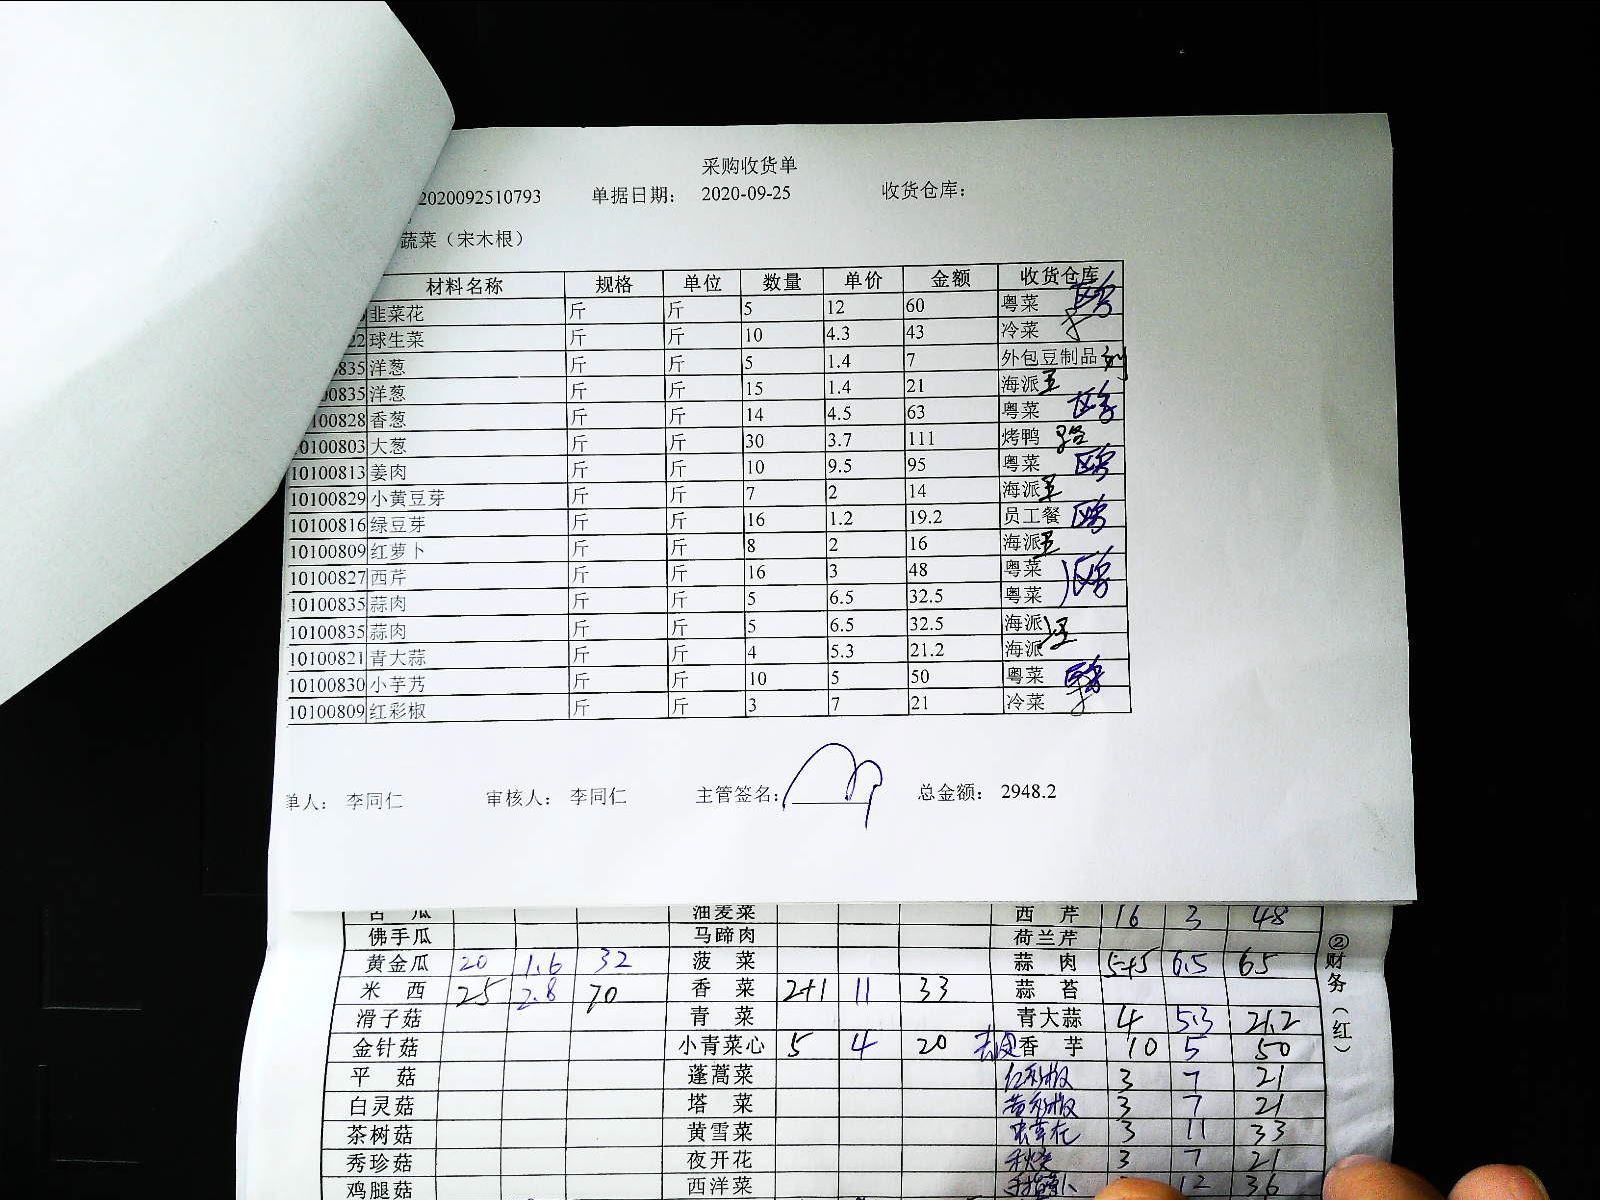 采购收货单
2020092510793 单据日期: 2020-09-25 收货仓库:
蔬菜（宋木根）
材料名称 规格 单位 数量 单价 金额 收货仓库
韭菜花 斤 斤 5 12 60 粤菜
22 球生菜 斤 斤 10 4.3 43 冷菜
835 洋葱 斤 斤 5 1.4 7 外包豆制品 刘
0835 洋葱 斤 斤 15 1.4 21 海派 王
100828 香葱 斤 斤 14 4.5 63 粤菜
0100803 大葱 斤 斤 30 3.7 111 烤鸭
10100813 姜肉 斤 斤 10 9.5 95 粤菜
10100829 小黄豆芽 斤 斤 7 2 14 海派 王
10100816 绿豆芽 斤 斤 16 1.2 19.2 员工餐
10100809 红萝卜 斤 斤 8 2 16 海派 王
10100827 西芹 斤 斤 16 3 48 粤菜
10100835 蒜肉 斤 斤 5 6.5 32.5 粤菜
10100835 蒜肉 斤 斤 5 6.5 32.5 海派
10100821 青大蒜 斤 斤 4 5.3 21.2 海派 王
10100830 小芋艿 斤 斤 10 5 50 粤菜
10100809 红彩椒 斤 斤 3 7 21 冷菜
单人: 李同仁 审核人: 李同仁 主管签名: 总金额: 2948.2
苦 瓜 油麦菜 西 芹 16 3 48
佛手瓜 马蹄肉 荷兰芹
黄金瓜 20 1.6 32 菠 菜 蒜 肉 5+5 6.5 65
米 西 25 2.8 70 香 菜 2+1 11 33 蒜 苔
滑子菇 青 菜 青大蒜 4 5.3 21.2
金针菇 小青菜心 5 4 20 去皮 香 芋 10 5 50
平 菇 蓬蒿菜 红彩椒 3 7 21
白灵菇 塔 菜 黄彩椒 3 7 21
茶树菇 黄雪菜 虫草花 3 11 33
秀珍菇 夜开花 秋葵 3 7 21
鸡腿菇 西洋菜 12 36
②财务（红）